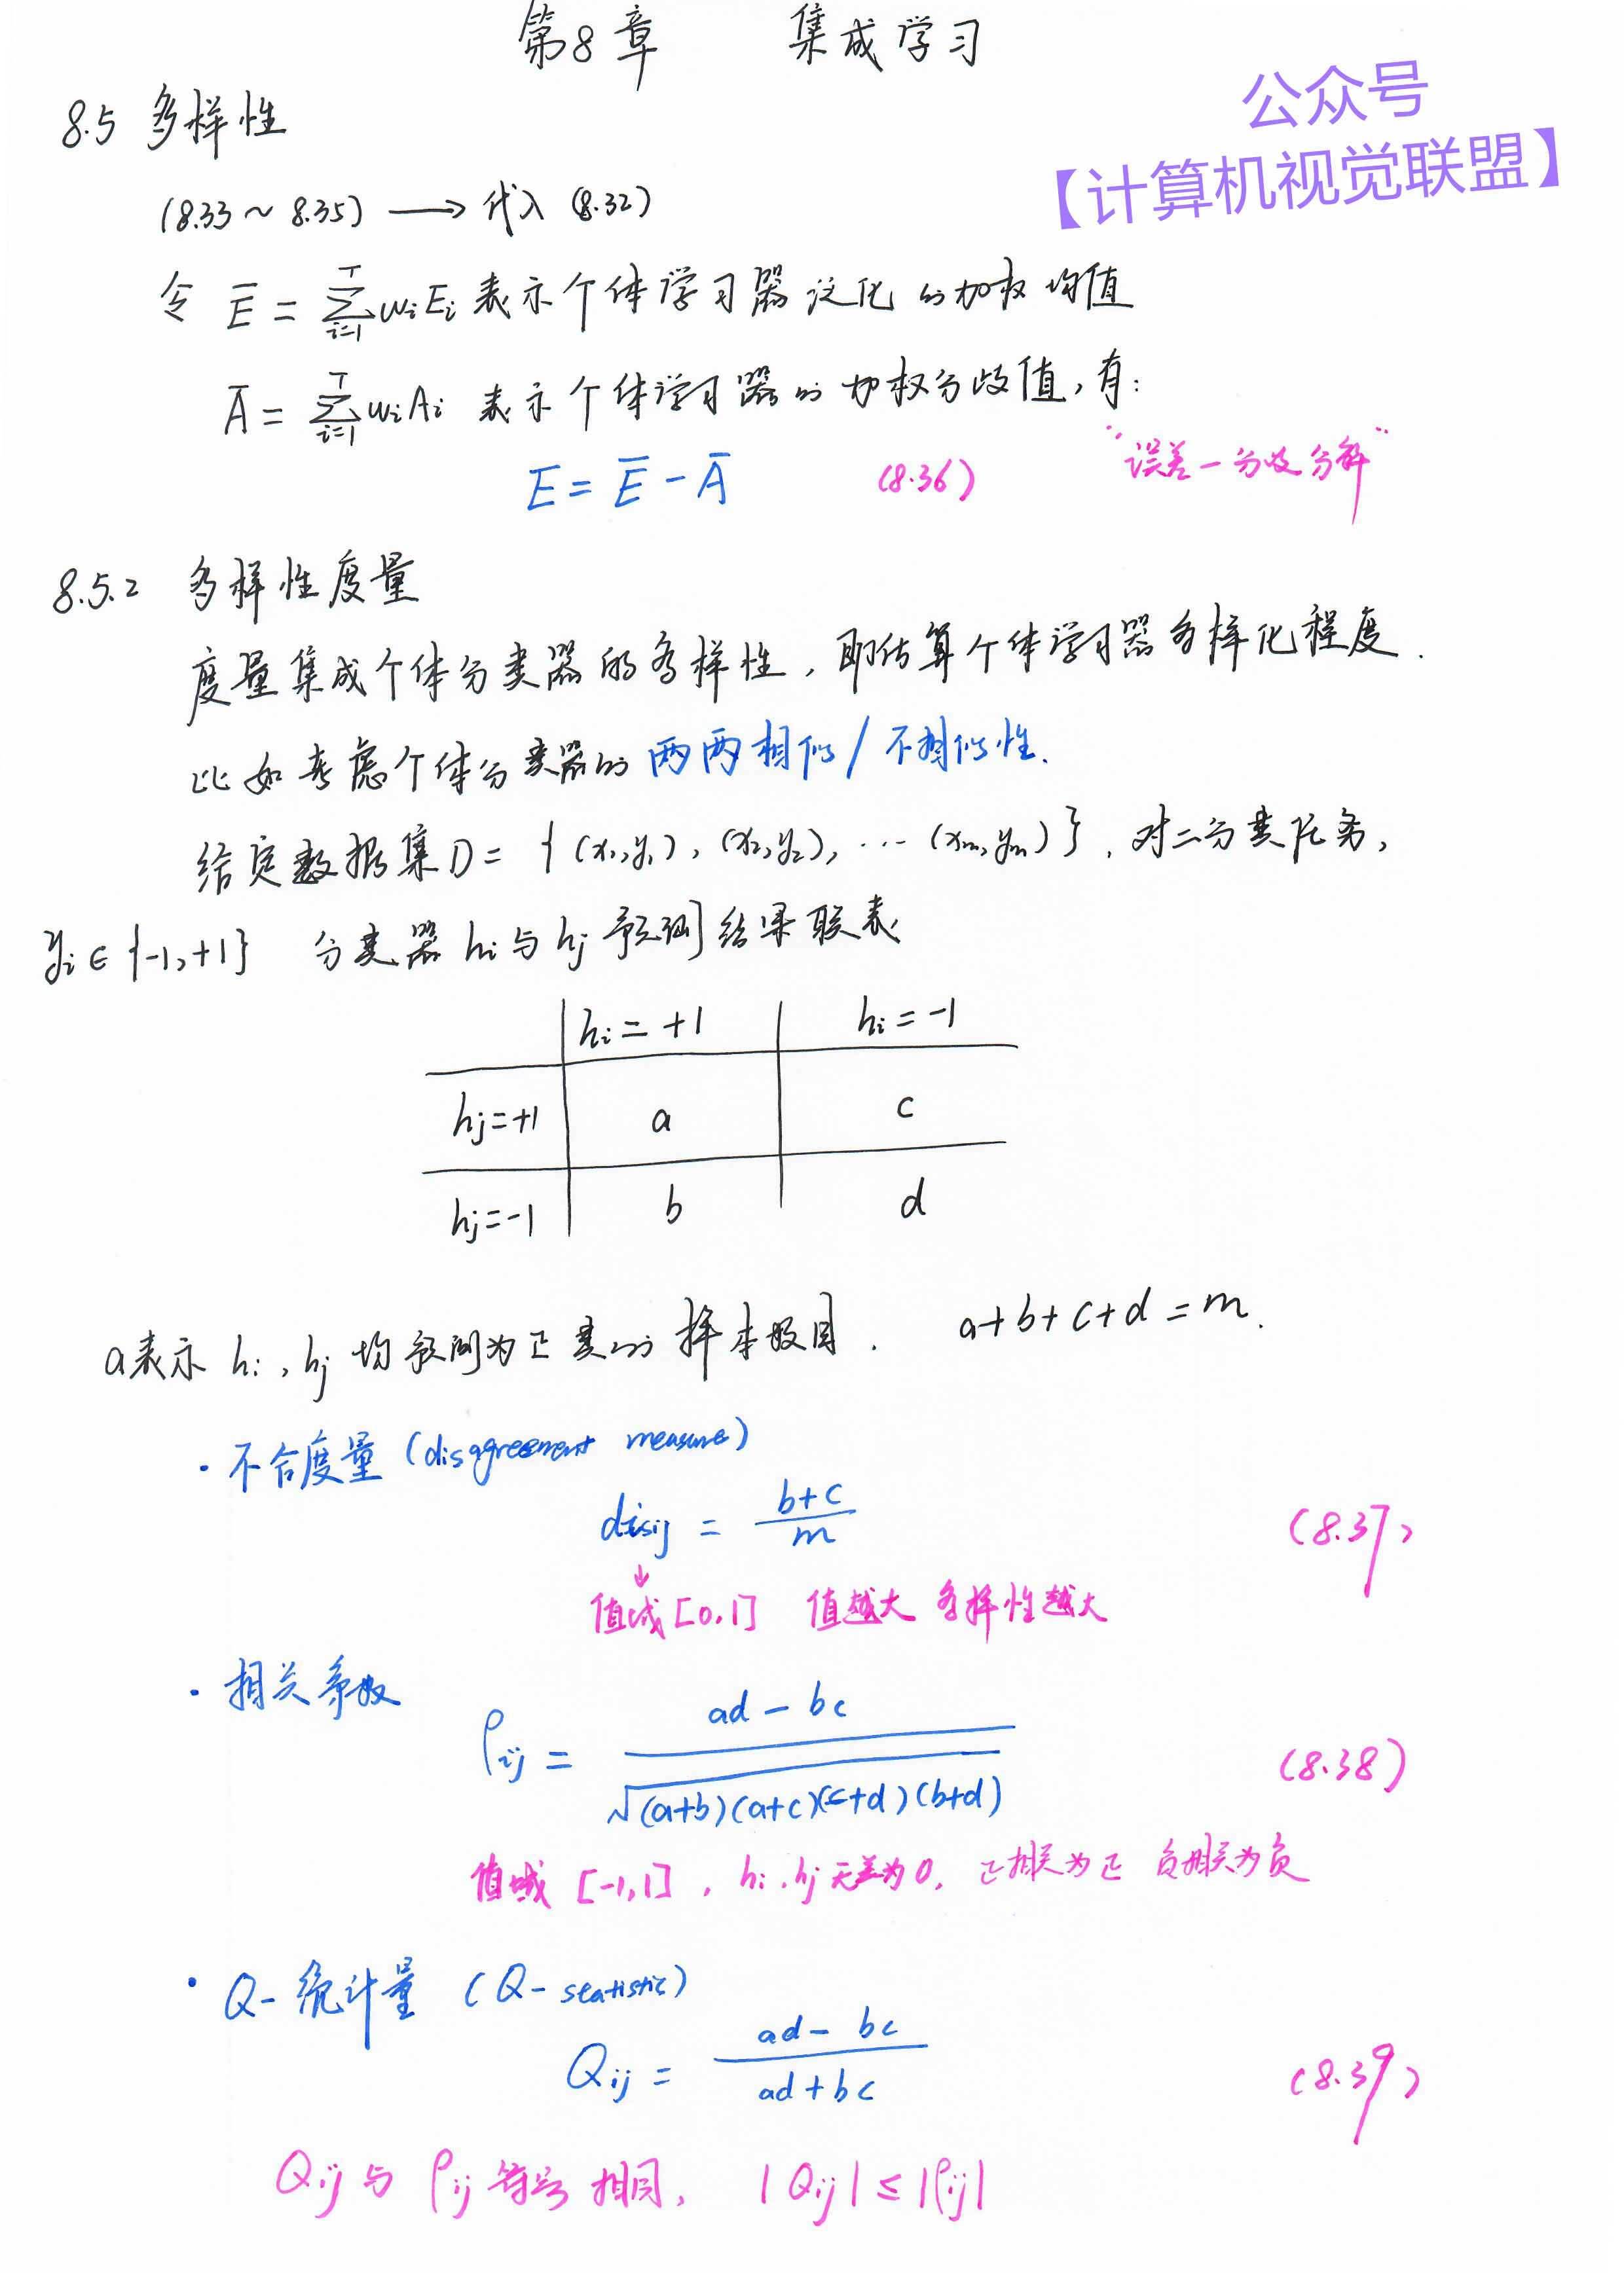 第8章 集成学习
公众号
【计算机视觉联盟】
8.5 多样性
(8.33 ~ 8.35) → 代入 (8.32)
令 Ē = ∑_{i=1}^{T} w_i E_i 表示个体学习器泛化的加权均值
Ā = ∑_{i=1}^{T} w_i A_i 表示个体学习器的加权分歧值,有:
E = Ē - Ā (8.36) "误差-分歧分解"
8.5.2 多样性度量
度量集成个体分类器的多样性,即估算个体学习器多样化程度.
比如考虑个体分类器的两两相似/不相似性.
给定数据集D = {(x₁,y₁), (x₂,y₂), … (xₘ,yₘ)}. 对二分类任务,
y_i ∈ {-1,+1} 分类器 h_i 与 h_j 预测结果联表
h_i = +1 h_i = -1
h_j = +1 a c
h_j = -1 b d
a表示 h_i, h_j 均预测为正类的样本数目. a+b+c+d = m.
· 不合度量 (disagreement measure)
dis_ij = (b+c)/m (8.37)
↓
值域[0,1] 值越大 多样性越大
· 相关系数
ρ_ij = (ad - bc)/√((a+b)(a+c)(c+d)(b+d)) (8.38)
值域 [-1,1], h_i, h_j 无关为0, 正相关为正 负相关为负
· Q-统计量 (Q-statistic)
Q_ij = (ad - bc)/(ad + bc) (8.39)
Q_ij 与 ρ_ij 符号相同, |Q_ij| ≤ |ρ_ij|